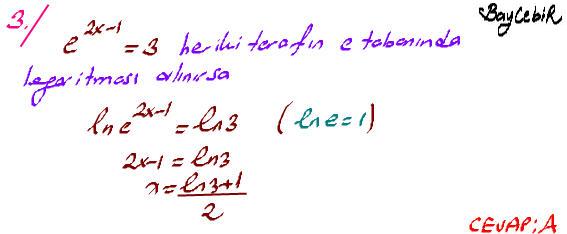 BayCebiR
3./ e^{2x-1} = 3 her iki tarafın e tabanında
logaritması alınırsa
ln e^{2x-1} = ln3 (ln e = 1)
2x-1 = ln3
x = \frac{ln3+1}{2}
CEVAP: A